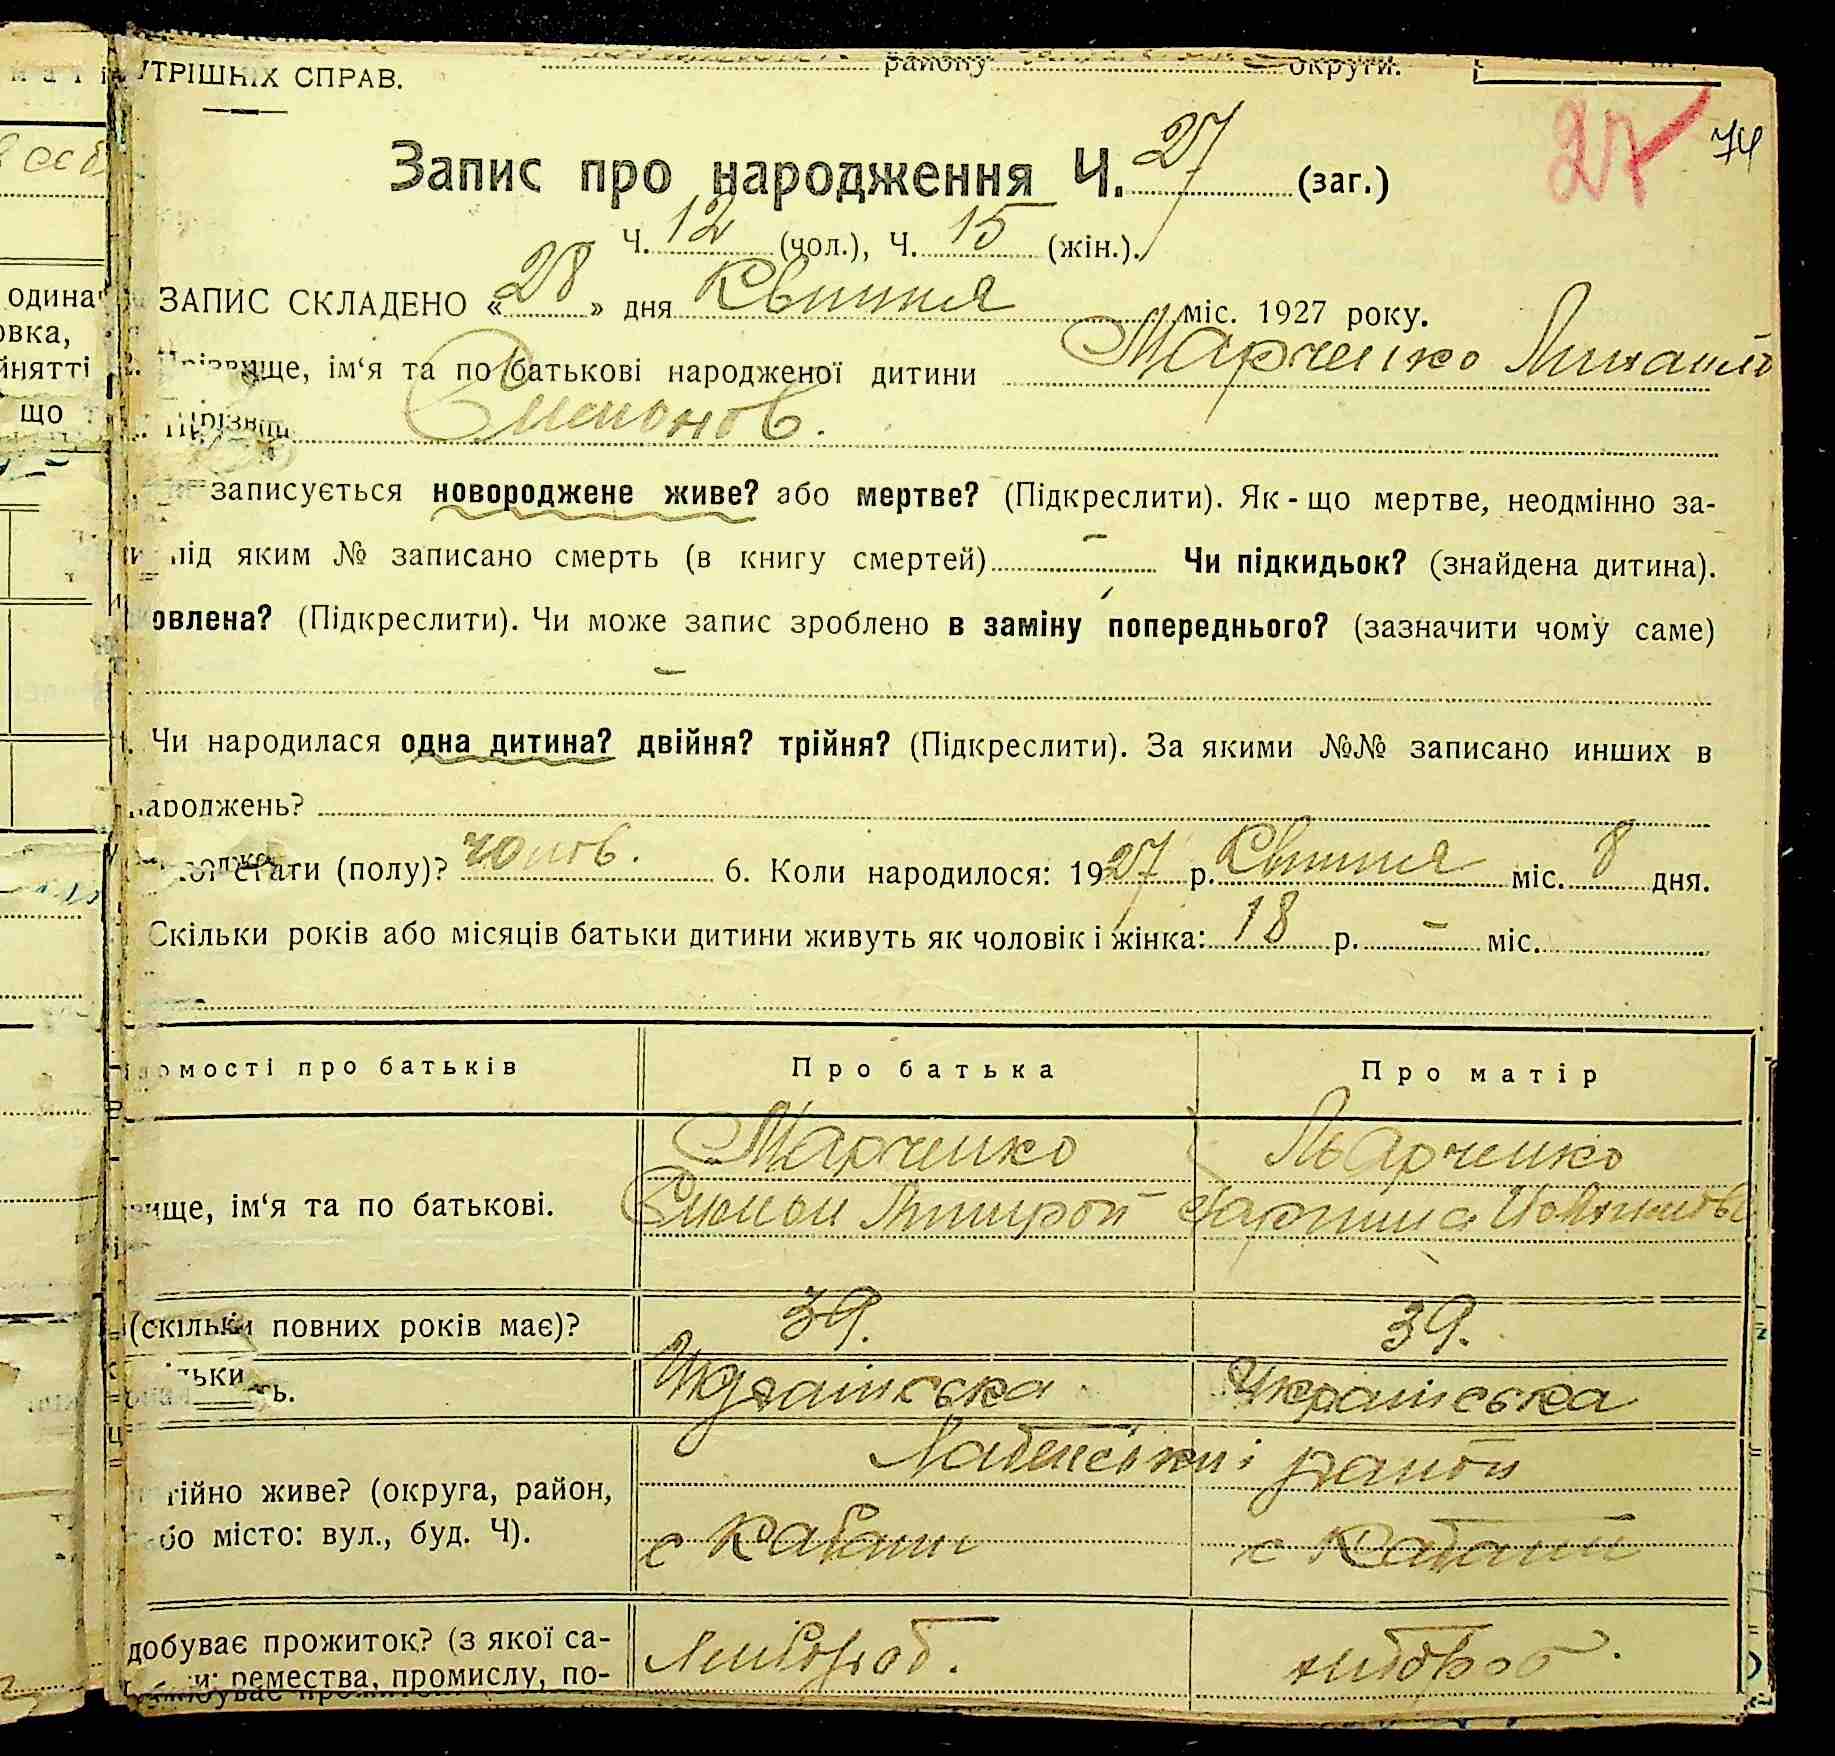 УТРІШНІХ СПРАВ.
району округи.
27 74
Запис про народження Ч. 27 (заг.)
Ч. 12 (чол.), Ч. 15 (жін.).
ЗАПИС СКЛАДЕНО «28» дня Квітня міс. 1927 року.
Прізвище, ім'я та по батькові народженої дитини Марченко Михайло
Семенов.
записується новороджене живе? або мертве? (Підкреслити). Як-що мертве, неодмінно за-
під яким № записано смерть (в книгу смертей) – Чи підкидьок? (знайдена дитина).
овлена? (Підкреслити). Чи може запис зроблено в заміну попереднього? (зазначити чому саме)
–
Чи народилася одна дитина? двійня? трійня? (Підкреслити). За якими №№ записано инших в
народжень?
стати (полу)? чолов. 6. Коли народилося: 1927 р. Квітня міс. 8 дня.
Скільки років або місяців батьки дитини живуть як чоловік і жінка: 18 р. – міс.
омості про батьків Про батька Про матір
Марченко Марченко
вище, ім'я та по батькові.
(скільки повних років має)? 39. 39.
Українська Українська
район
тійно живе? (округа, район, або місто: вул., буд. Ч).
с Кабани с Кабани
добуває прожиток? (з якої са-
хлібороб. хлібороб.
ремества, промислу, по-
одина
овка,
йнятті
що